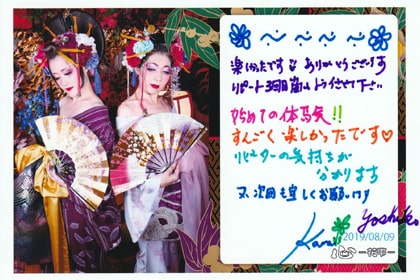 楽しかったです ありがとうございます
リピート3回目 トライさせて下さい
始めての体験!!
すんごく楽しかったです♡
リピーターの気持ちが
分かります
又、次回も宜しくお願いします
Yoshiko
Kana
2019/08/09